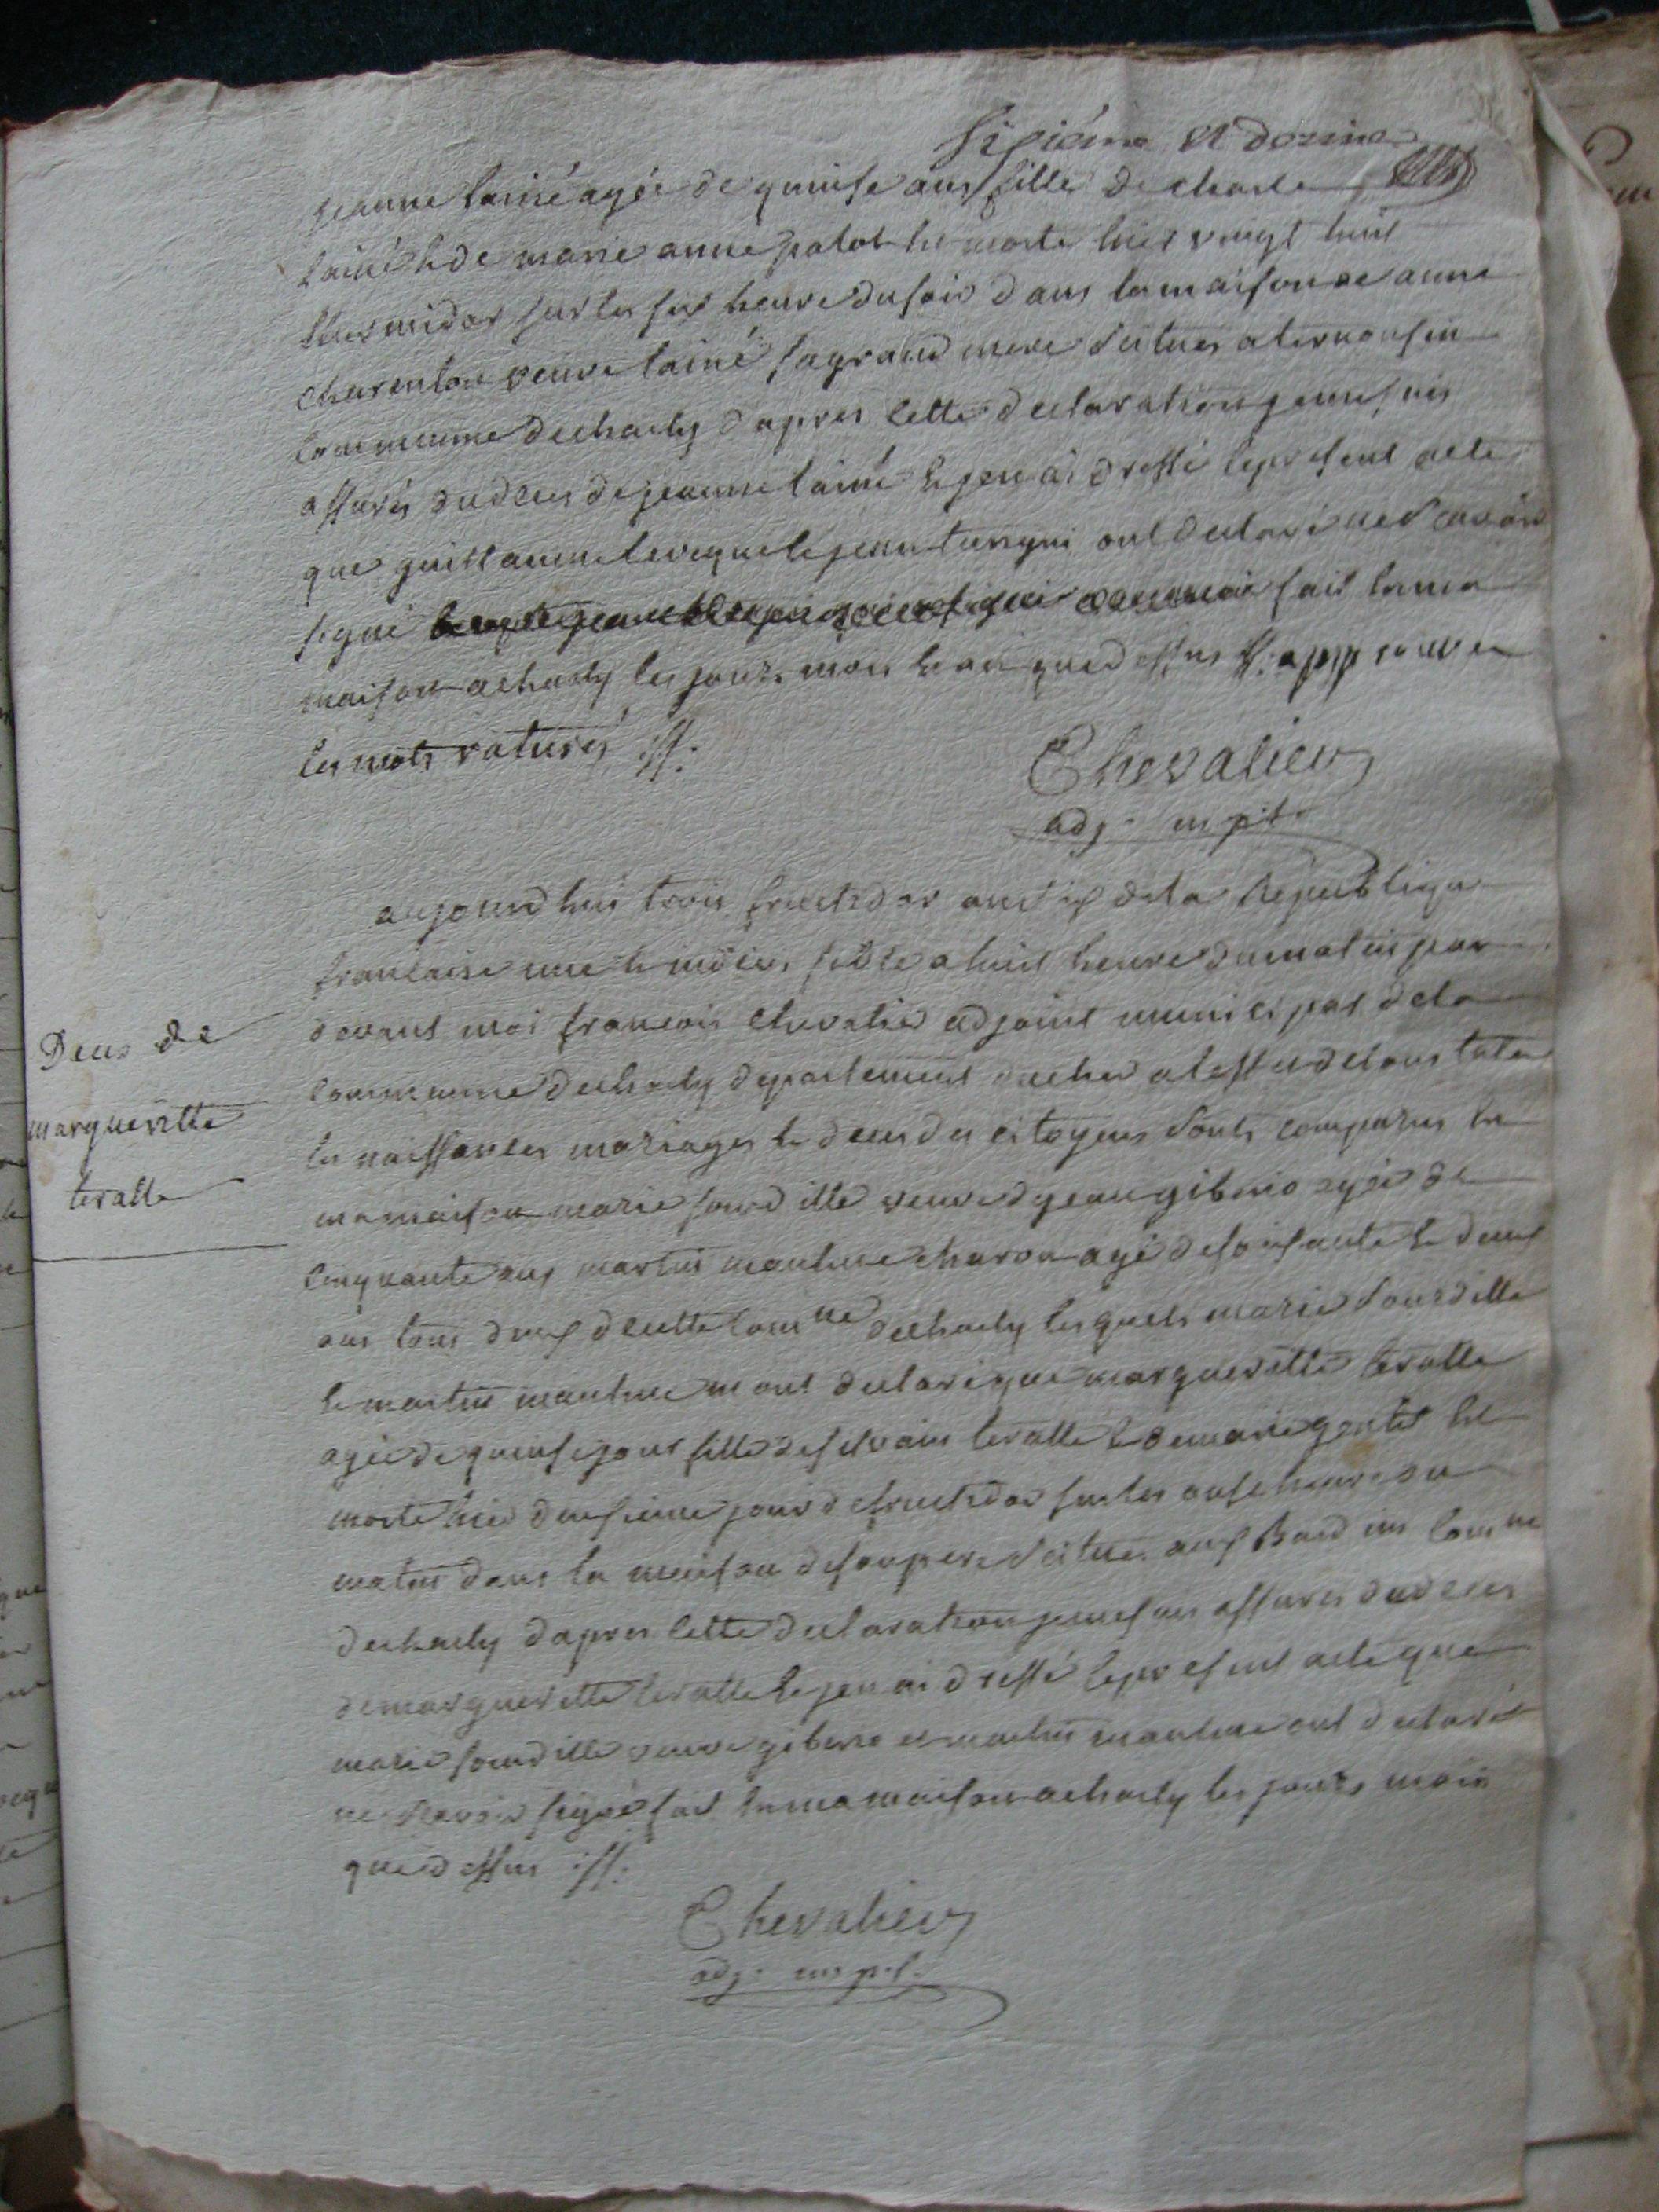 sisiéme et dernier
jeanne lainé agée de quinse ans fille de charle
lainé & de marie anne patot he morte hier vingt huit
thermidor sur les six heure du soir dans la maison de anne
charenton veuve lainé sa grand mere scitues
commune decharly dapres cette declaration je me suis
assurés dudeces de jeanne lainé & jen ai dressé le present acte
que guillaume leveque & jean ont declaré ne scavoir
signé fait en ma
maison acharly les jours mois & an que dessus approuver
les mots raturés
Chevalier
adj. mpt.
aujourdhui trois fructidor an six dela république
francaise une & indivisible a huit heure du matin par
devant moi francois chevalier adjoint municipal dela
commune decharly departement du cher
les naissances mariages & deces des citoyens sont comparus en
ma maison marie sourdille veuve de jean giberio agée de
cinquante ans martin manhue charon agé de soisante & deux
ans tous deux de cette comne decharly lesquels marie sourdille
& martin manhue mont declaré que margueritte teralle
agée de quinse jour fille de silvain teralle & de marie gentet he
morte hier deusieme jour de fructidor sur les onse heure du
matin dans la maison de son pere scitué aux Bardins comne
decharly dapres cette declaration je me suis assurés dudeces
demarguerite teralle & jen ai dressé le present acte que
marie sourdille veuve giberio et martin manhue ont declaré
ne scavoir signé fait en ma maison acharly les jours mois
que dessus
Chevalier
adj. mpl.
Deces de
margueritte
teralle